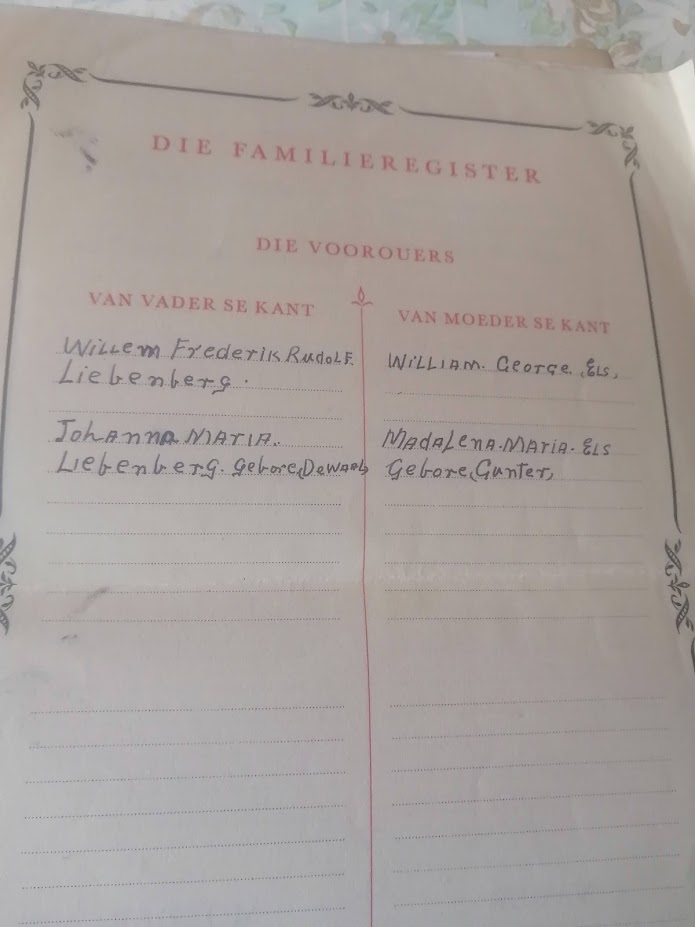 DIE FAMILIEREGISTER
DIE VOOROUERS
VAN VADER SE KANT
Willem Frederik Rudolf.
Liebenberg.
Johanna Maria.
Liebenberg. Gebore (DeWaal)
VAN MOEDER SE KANT
William. George. Els,
Madalena. Maria. Els
Gebore (Gunter)